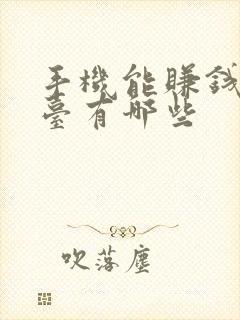 手機能賺錢
臺有哪些
吹落塵